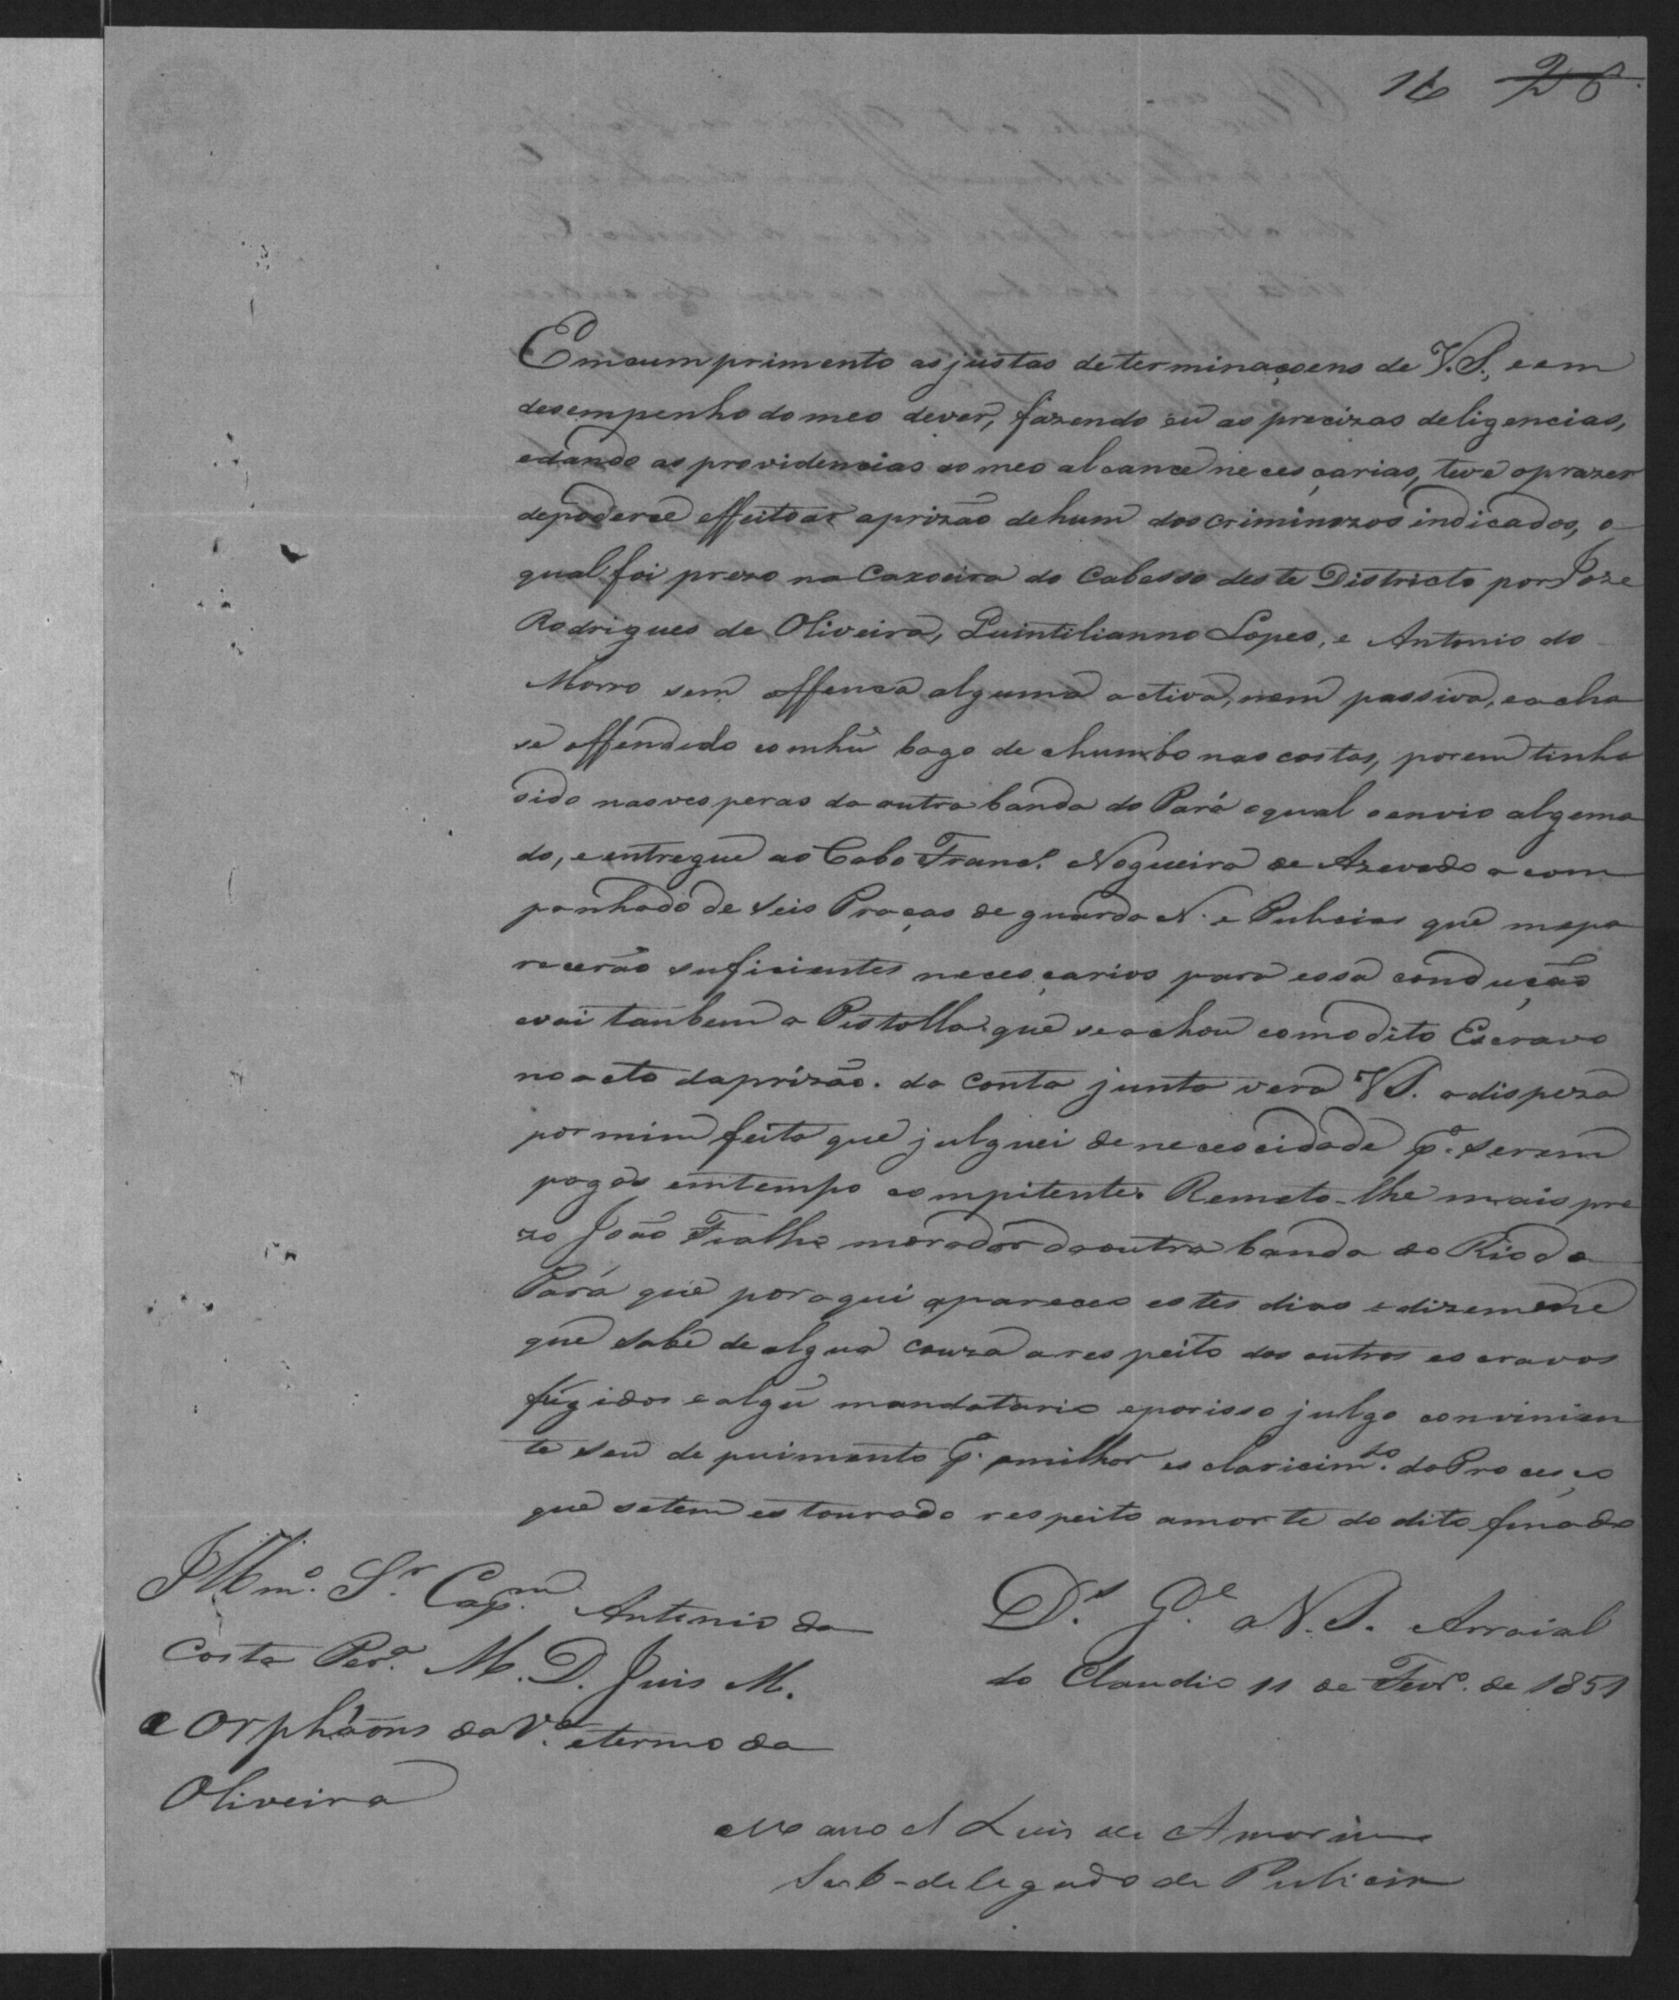 16 26
Em cumprimento as justas determinaçoens de V.S., e em
desempenho do meo dever, fazendo eu as precizas deligencias,
e dando as providencias ao meo alcance necesçarias, teve o prazer
de poderce effeitoar a prizão de hum dos criminozos indicados, o
qual foi prezo na Caxoeira do Cabesso deste Districto por Joze
Rodrigues de Oliveira, Quintilianno Lopes, e Antonio do
Morro sem offenca alguma activa, nem passiva, e acha
se offendido com hũ bago de chumbo nas costas, porem tinha
sido nas vesperas da outra banda do Pará o qual o envio algema
do, e entregue ao Cabo Franc.º Nogueira de Azevedo acom
panhado de seis Praças de guarda N. e Puliciaes que me pa
recerão suficientes necesçarios para essa condução
e vai tanbem a Pistolla que se achou com o dito Escravo
no acto da prizão. da Conta junta verá V S. a dispeza
por mim feita que julguei de necescidade p.ª serem
pagas em tempo compitente. Remeto-lhe mais pre
zo João Fialho morador da outra banda do Rio do
Pará que por aqui apareceo estes dias e dizem
que sabe de algua couza a respeito dos outros escravos
fugidos e algũ mandatario e por isso julgo convinien
te seu depuimento p.ª a milhor esclaricim.to do Procesço
que se tem estourado respeito a morte do dito finado
Illm.º S.r Cap.m Antonio da
Costa Per.ª M. D. Juis M.
e Orphãons da V.ª e termo da
Oliveira
D.s G.e a V. S. Arraial
do Claudio 11 de Fevr.º de 1851
Manoel Luis de Amorim
Sub-delegado de Pulicia